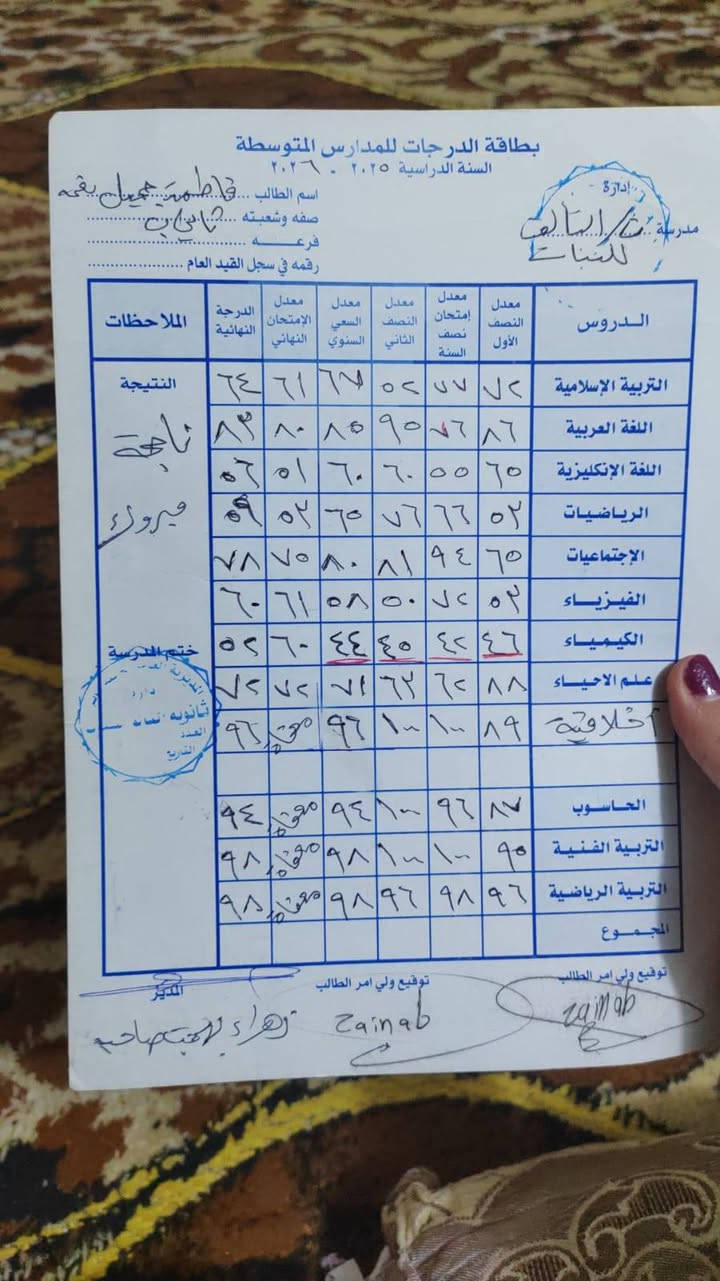 بطاقة الدرجات للمدارس المتوسطة
السنة الدراسية ٢٠٢٥ - ٢٠٢٦
اسم الطالب فاطمة جميل
صفه وشعبته
فرعه
رقمه في سجل القيد العام
إدارة
مدرسة
للبنات
الدروس | معدل النصف الأول | معدل إمتحان نصف السنة | معدل النصف الثاني | معدل السعي السنوي | معدل الإمتحان النهائي | الدرجة النهائية | الملاحظات
التربية الإسلامية | ٧٢ | ٧٧ | ٥٢ | ٦٧ | ٦١ | ٦٤ | النتيجة
اللغة العربية | ٨٦ | ٧٦ | ٩٥ | ٨٥ | ٨٠ | ٨٣ | ناجحة
اللغة الإنكليزية | ٦٥ | ٥٥ | ٦٠ | ٦٠ | ٥١ | ٥٦
الرياضيات | ٥٣ | ٦٦ | ٧٦ | ٦٥ | ٥٣ | ٥٩ | مبروك
الإجتماعيات | ٦٥ | ٩٤ | ٨١ | ٨٠ | ٧٥ | ٧٨
الفيزياء | ٥٣ | ٧٢ | ٥٠ | ٥٨ | ٦١ | ٦٠
الكيمياء | ٤٦ | ٤٢ | ٤٥ | ٤٤ | ٦٠ | ٥٢ | ختم المدرسة
علم الاحياء | ٨٨ | ٦٢ | ٦٣ | ٧١ | ٧٢ | ٧٢
أخلاقية | ٨٩ | ١٠٠ | ١٠٠ | ٩٦ | ٩٦
ثانوية
العدد
التاريخ
الحاسوب | ٨٧ | ٩٦ | ١٠٠ | ٩٤ | ٩٤
التربية الفنية | ٩٥ | ١٠٠ | ١٠٠ | ٩٨ | ٩٨
التربية الرياضية | ٩٦ | ٩٨ | ٩٦ | ٩٨ | ٩٨
المجموع
توقيع ولي امر الطالب
توقيع ولي امر الطالب
المدير
zainab
zainab
زهراء